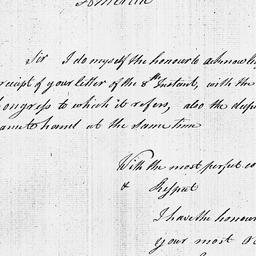 Sir I do myself the honour to acknowle
receipt of your letter of the 8th Instant, with the
Congress to which it refers, also the disp
came to hand at the same time
With the most perfect co
& Respect
I have the honour
your most O